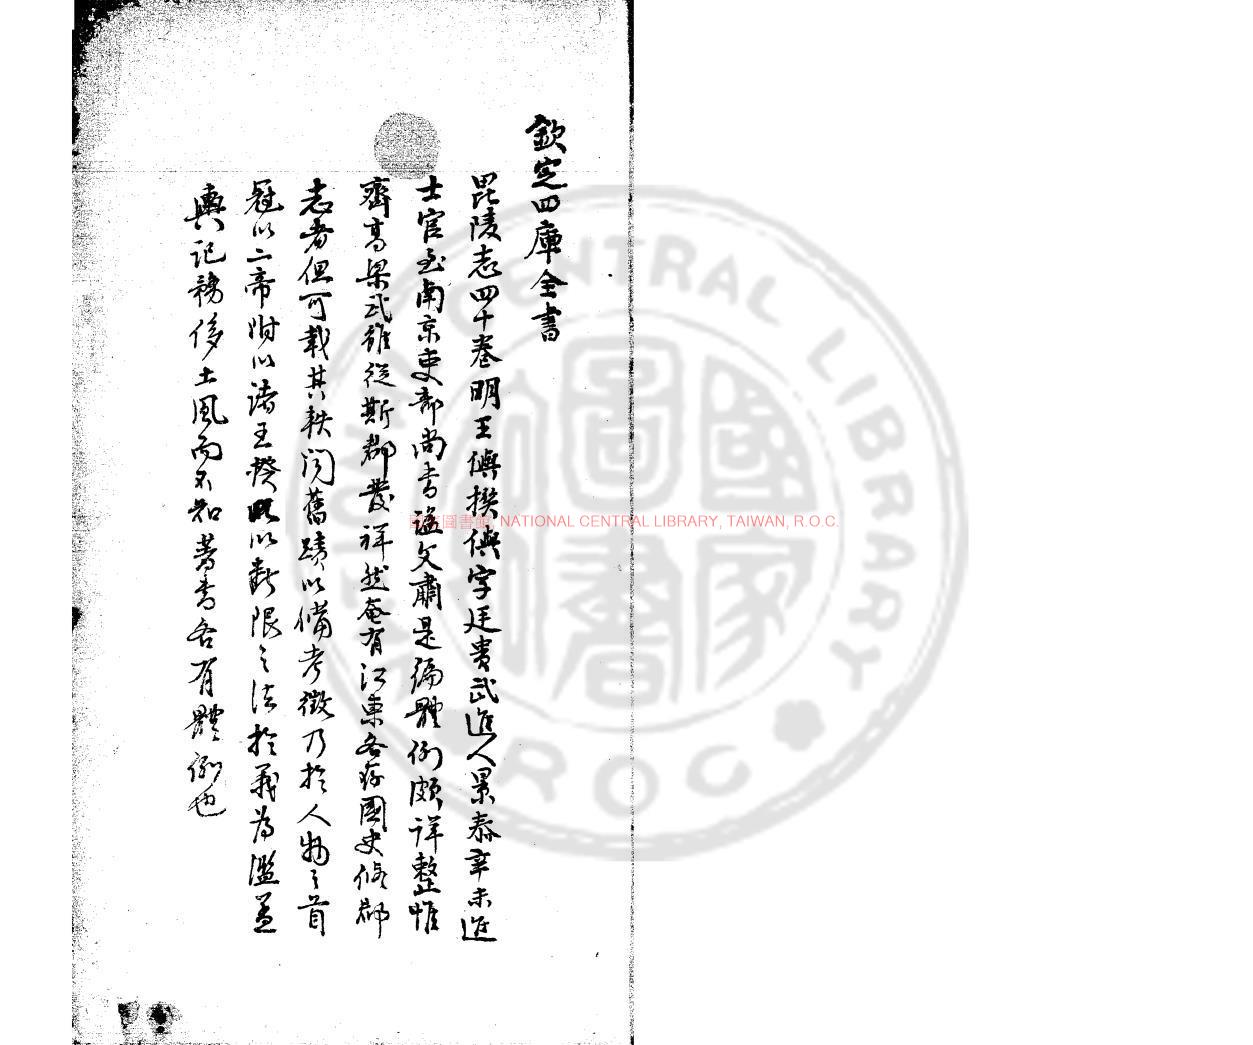 欽定四庫全書
毘陵志四十卷明王㒜撰㒜字廷貴武進人景泰辛未進
士官至南京吏部尚書諡文肅是編體例頗詳整惟
齊高梁武雖從斯郡發祥然奄有江東各存國史脩郡
志者但可載其軼聞舊蹟以備考徵乃於人物之首
冠以二帝附以諸王揆以斷限之法於義為濫蓋
輿記務侈土風而不知著書各有體例也
國家圖書館 NATIONAL CENTRAL LIBRARY, TAIWAN, R.O.C.
國家圖書
NATIONAL CENTRAL LIBRARY
ROC